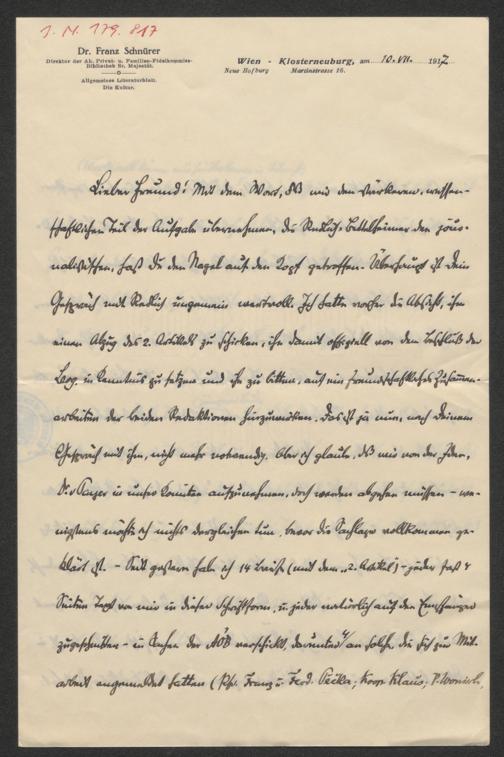 J. N. 179.817
Dr. Franz Schnürer
Direktor der Ah. Privat- u. Familien-Fideikommiss-
Bibliothek Sr. Majestät.
Allgemeines Literaturblatt.
Die Kultur.
Wien - Klosterneuburg, am 10. VII. 1917
Neue Hofburg Martinstrasse 16.
Lieber Freund! Mit dem Wort, daß wir den stärkeren, wissen-
schaftlichen Teil der Aufgabe übernehmen, die Redlich-Bettelheimer den jour-
nalistischen, hast Du den Nagel auf den Kopf getroffen. Überhaupt ist Dein
Gespräch mit Redlich ungemein wertvoll. Ich hatte vorher die Absicht, ihm
einen Abzug des 2. Artikels zu schicken, ihn damit offiziell von dem Beschluß der
Leog. in Kenntnis zu setzen und ihn zu bitten, auf ein freundschaftliches Zusammen-
arbeiten der beiden Redaktionen hinzuwirken. Das ist ja nun, nach Deinem
Gespräch mit ihm, nicht mehr notwendig. Aber ich glaube, daß wir von der Idee,
in unser Komitee aufzunehmen, doch werden absehen müssen – we-
nigstens möchte ich nichts dergleichen tun, bevor die Sachlage vollkommen ge-
klärt ist. – Seit gestern habe ich 14 Briefe (mit dem „2. Artikel) – jeder fast 4
Seiten lang von mir in dieser Schriftform, u. jeder natürlich auf den Empfänger
zugeschnitten – in Sachen der AÖB verschickt, darunter 4 an solche, die sich zur Mit-
arbeit angemeldet hatten ( Franz u. Ferd. Koop. Klaus, P.